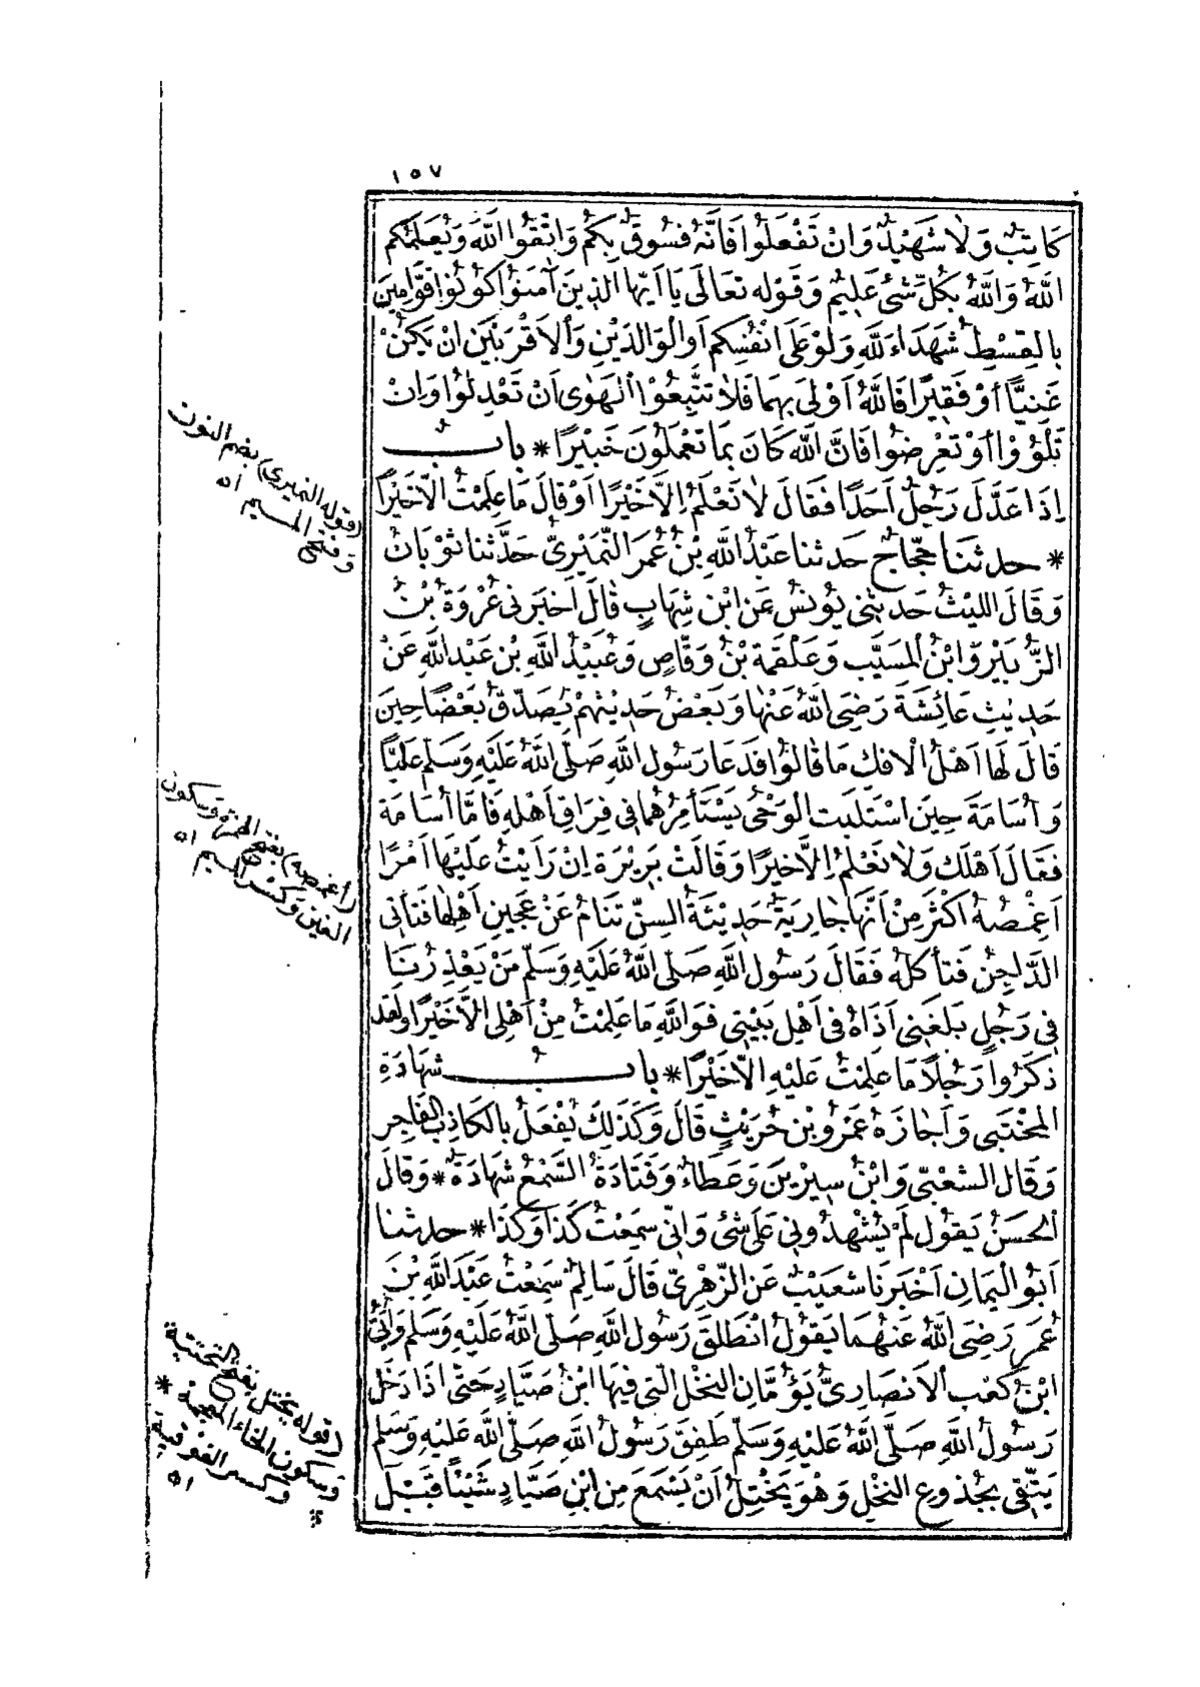 ١٥٧
كَاتِبٌ وَلَا شَهِيدٌ وَانْ تَفْعَلُوا فَانَّهُ فُسُوقٌ بِكُمْ وَاتَّقُوا اللهَ وَيُعَلِّمُكُم
اللهُ وَاللهُ بِكُلِّ شَئٍ عَلِيمٌ وَقَوْلِهِ تَعَالَى يَا اَيُّهَا الَّذِينَ آمَنُوا كُونُوا قَوَّامِينَ
بِالقِسْطِ شُهَدَاءَ للهِ وَلَوْ عَلَى اَنْفُسِكُم اَوِ الْوَالِدَيْنِ وَالْاَقْرَبِينَ اِنْ يَكُنْ
غَنِيًّا أَوْ فَقِيرًا فَاللهُ اَوْلَى بِهِمَا فَلَا تَتَّبِعُوا الْهَوٰى اَنْ تَعْدِلُوا وَاِنْ
تَلْوُوْا أَوْ تُعْرِضُوا فَاِنَّ اللهَ كَانَ بِمَا تَعْمَلُونَ خَبِيْرًا * بابُ
اِذَا عَدَّلَ رَجُلٌ اَحَدًا فَقَالَ لَا نَعْلَمُ اِلَّا خَيْرًا اَوْ قَالَ مَا عَلِمْتُ اِلَّا خَيْرًا
* حدثنَا حَجَّاجٌ حَدثنا عَبْدُ اللهِ بْنُ عُمَرَ النُّمَيْرِيُّ حَدَّثنا ثَوْبَانُ
وَقَالَ اللَّيْثُ حَدثِنى يُونُسُ عَنِ ابْنِ شِهَابٍ قَالَ اَخْبَرَنى عُرْوَةُ بْنُ
الزُّبَيْرِ وَابْنُ المُسَيَّبِ وَعَلْقَمَةُ بْنُ وَقَّاصٍ وَعُبَيْدُ اللهِ بْنُ عَبْدِ اللهِ عَنْ
حَدِيثِ عَائِشَةَ رَضِىَ اللهُ عَنْهَا وَبَعْضُ حَدِيثِهِمْ يُصَدِّقُ بَعْضًا حِينَ
قَالَ لَهَا اَهْلُ الْاِفكِ مَا قَالُوا فَدَعَا رَسُولُ اللهِ صَلَّى اللهُ عَلَيْهِ وَسَلَّمَ عَلِيًّا
وَأُسَامَةَ حِينَ اسْتَلْبَثَ الْوَحْىُ يَسْتَأْمِرُهُمَا فِى فِرَاقِ اَهْلِهِ فَاَمَّا اُسَامَةُ
فَقَالَ اَهْلُكَ وَلَا نَعْلَمُ اِلَّا خَيْرًا وَقَالَتْ بَرِيْرَةُ اِنْ رَاَيْتُ عَلَيْهَا اَمْرًا
اَغْمِصُهُ اَكْثَرَ مِنْ اَنَّهَا جَارِيَةٌ حَدِيْثَةُ السِّنِّ تَنَامُ عَنْ عَجِينِ اَهْلِهَا فَتَأْتى
الدَّاجِنُ فَتَأْكُلُهُ فَقَالَ رَسُولُ اللهِ صَلَّى اللهُ عَلَيْهِ وَسَلَّمَ مَنْ يَعْذِرُنَا
فِى رَجُلٍ بَلَغَنِى اَذَاهُ فِى اَهْلِ بَيْتِى فَوَاللهِ مَا عَلِمْتُ مِنْ اَهْلِى اِلَّا خَيْرًا وَلَقَد
ذَكَرُوا رَجُلًا مَا عَلِمْتُ عَلَيْهِ اِلَّا خَيْرًا * بابُ شَهَادَةِ
المُخْتَبِى وَاَجَازَهُ عَمْرُو بْنُ حُرَيْثٍ قَالَ وَكَذَلِكَ يُفْعَلُ بِالكَاذِبِ الفَاجِرِ
وَقَالَ الشَّعْبِىُّ وَابْنُ سِيرِينَ وَعَطَاءٌ وَقَتَادَةُ السَّمْعُ شَهَادَةٌ * وَقَالَ
الْحَسَنُ يَقُولُ لَمْ يُشْهِدُونِى عَلَى شَئٍ وَاِنِّى سَمِعْتُ كَذَا وَكَذَا * حدثنا
اَبُو الْيَمَانِ اَخْبَرَنَا شُعَيْبٌ عَنِ الزُّهْرِىِّ قَالَ سَالِمٌ سَمِعْتُ عَبْدَ اللهِ بْنَ
عُمَرَ رَضِىَ اللهُ عَنْهُمَا يَقُولُ انْطَلَقَ رَسُولُ اللهِ صَلَّى اللهُ عَلَيْهِ وَسَلَّمَ وَأُبَىُّ
ابْنُ كَعْبٍ الْاَنصَارِىُّ يَؤُمَّانِ النَّخْلَ الَّتِى فِيهَا ابْنُ صَيَّادٍ حَتَّى اذَا دَخَلَ
رَسُولُ اللهِ صَلَّى اللهُ عَلَيْهِ وَسَلَّمَ طَفِقَ رَسُولُ اللهِ صَلَّى اللهُ عَلَيْهِ وَسَلَّمَ
يَتَّقِى بِجُذوعِ النَّخْلِ وَهُوَ يَخْتِلُ اَنْ يَسْمَعَ مِنِ ابْنِ صَيَّادٍ شَيْئًا قَبْلَ
(قوله النميرى) بضم النون
وفتح الميم اه
(أغمصه) بفتح الهمزة وسكون
الغين وكسر الميم اه
(قوله يختل بفتح التحتية *
وسكون الخاء المعجمة *
وكسر الفوقية
اه